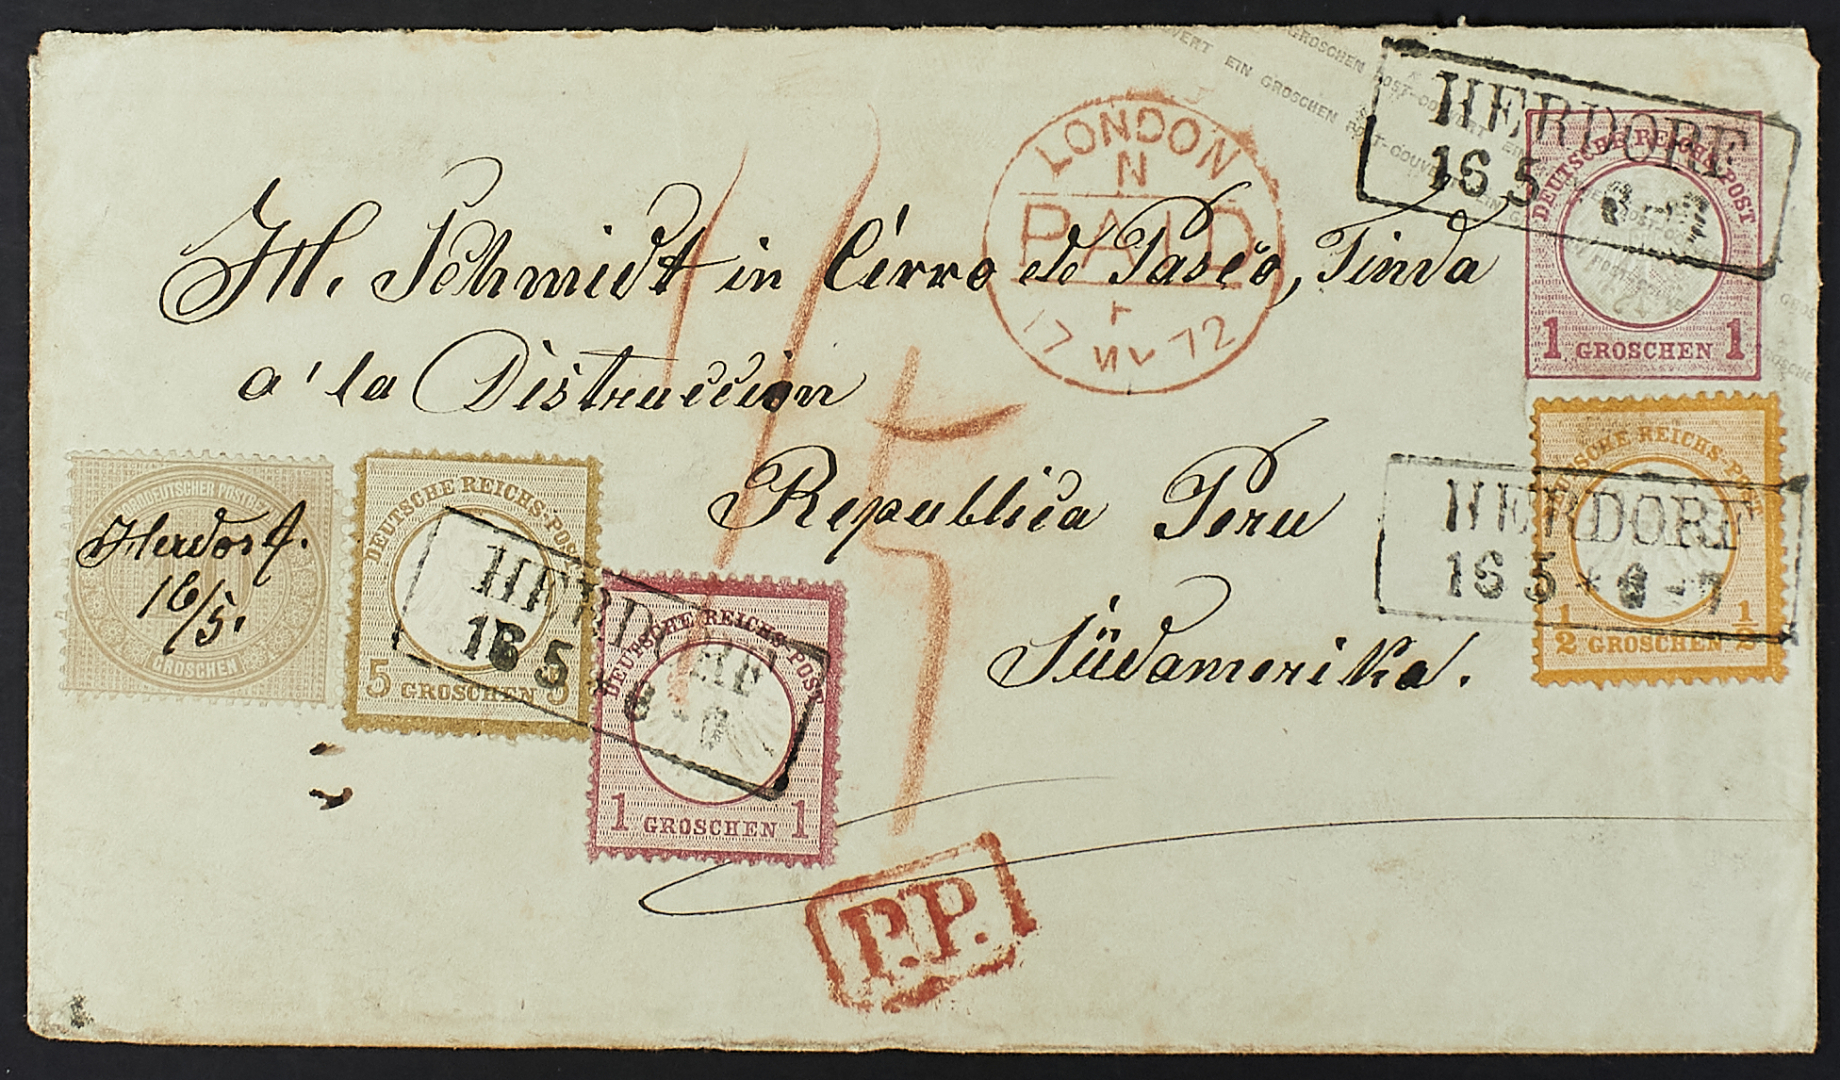 EIN GROSCHEN POST-COUVERT
HERDORF
16 5
DEUTSCHE REICHS-POST
1 GROSCHEN 1
LONDON
N
PAID
17 MY 72
H. Schmidt in Cerro de Pasco, Tinda
a' la Distruccion
Republica Peru
Südamerika.
15
NORDDEUTSCHER POSTBEZIRK
Herdorf.
16/5.
GROSCHEN
DEUTSCHE REICHS-POST
5 GROSCHEN 5
HERDORF
16 5
DEUTSCHE REICHS-POST
1 GROSCHEN 1
DEUTSCHE REICHS-POST
HERDORF
16 5 * 6-7
1/2 GROSCHEN 1/2
P.P.